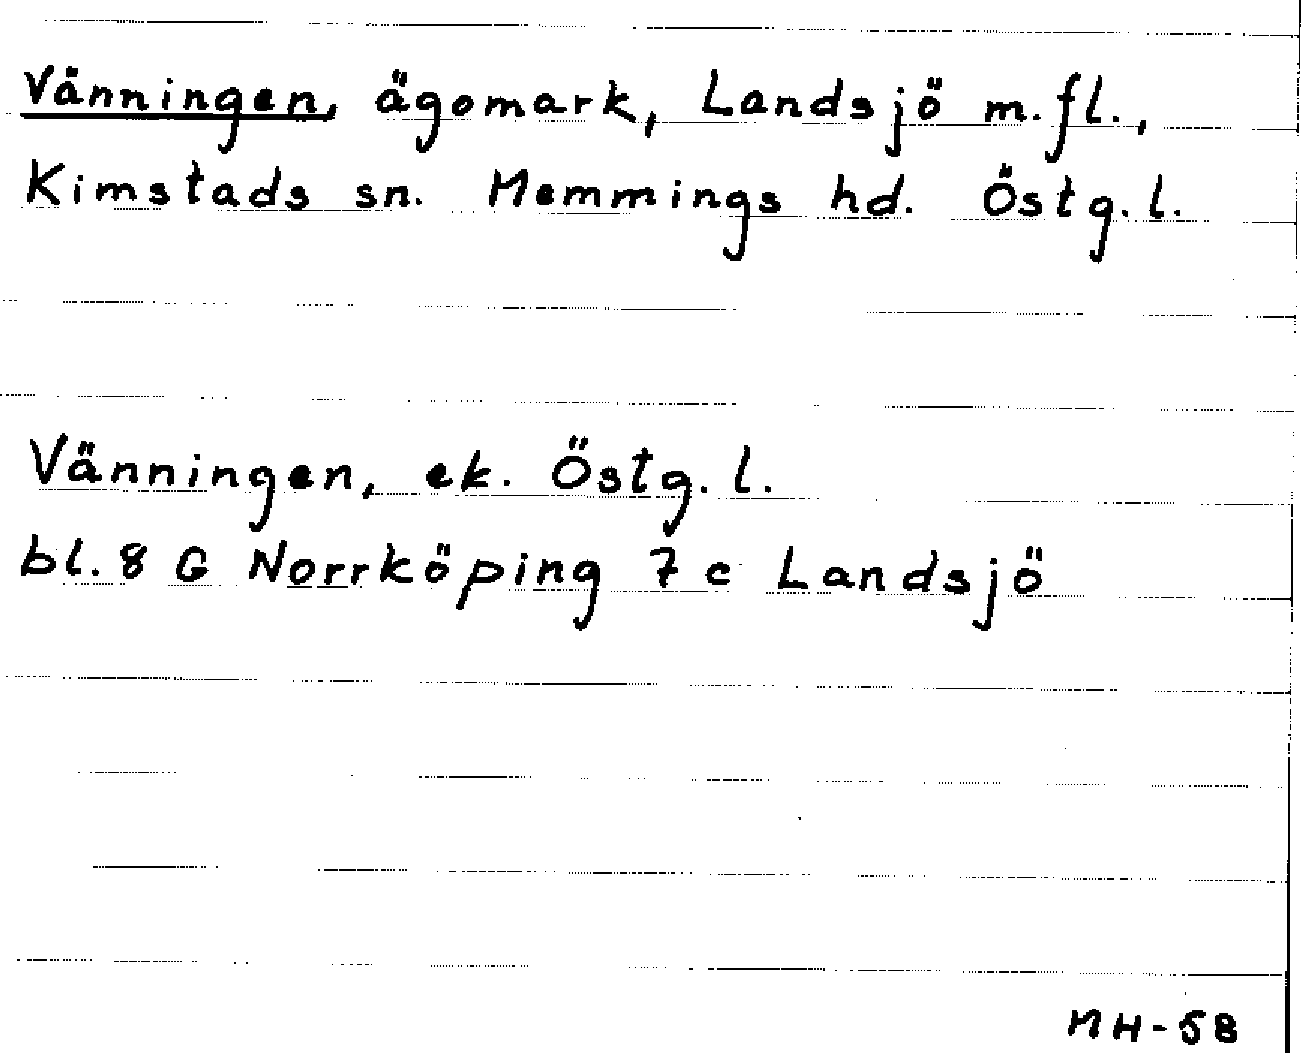 Vänningen, ägomark, Landsjö m.fl.,
Kimstads sn. Memmings hd. Östg.l.
Vänningen, ek. Östg.l.
bl. 8 G Norrköping 7 c Landsjö
MH-58